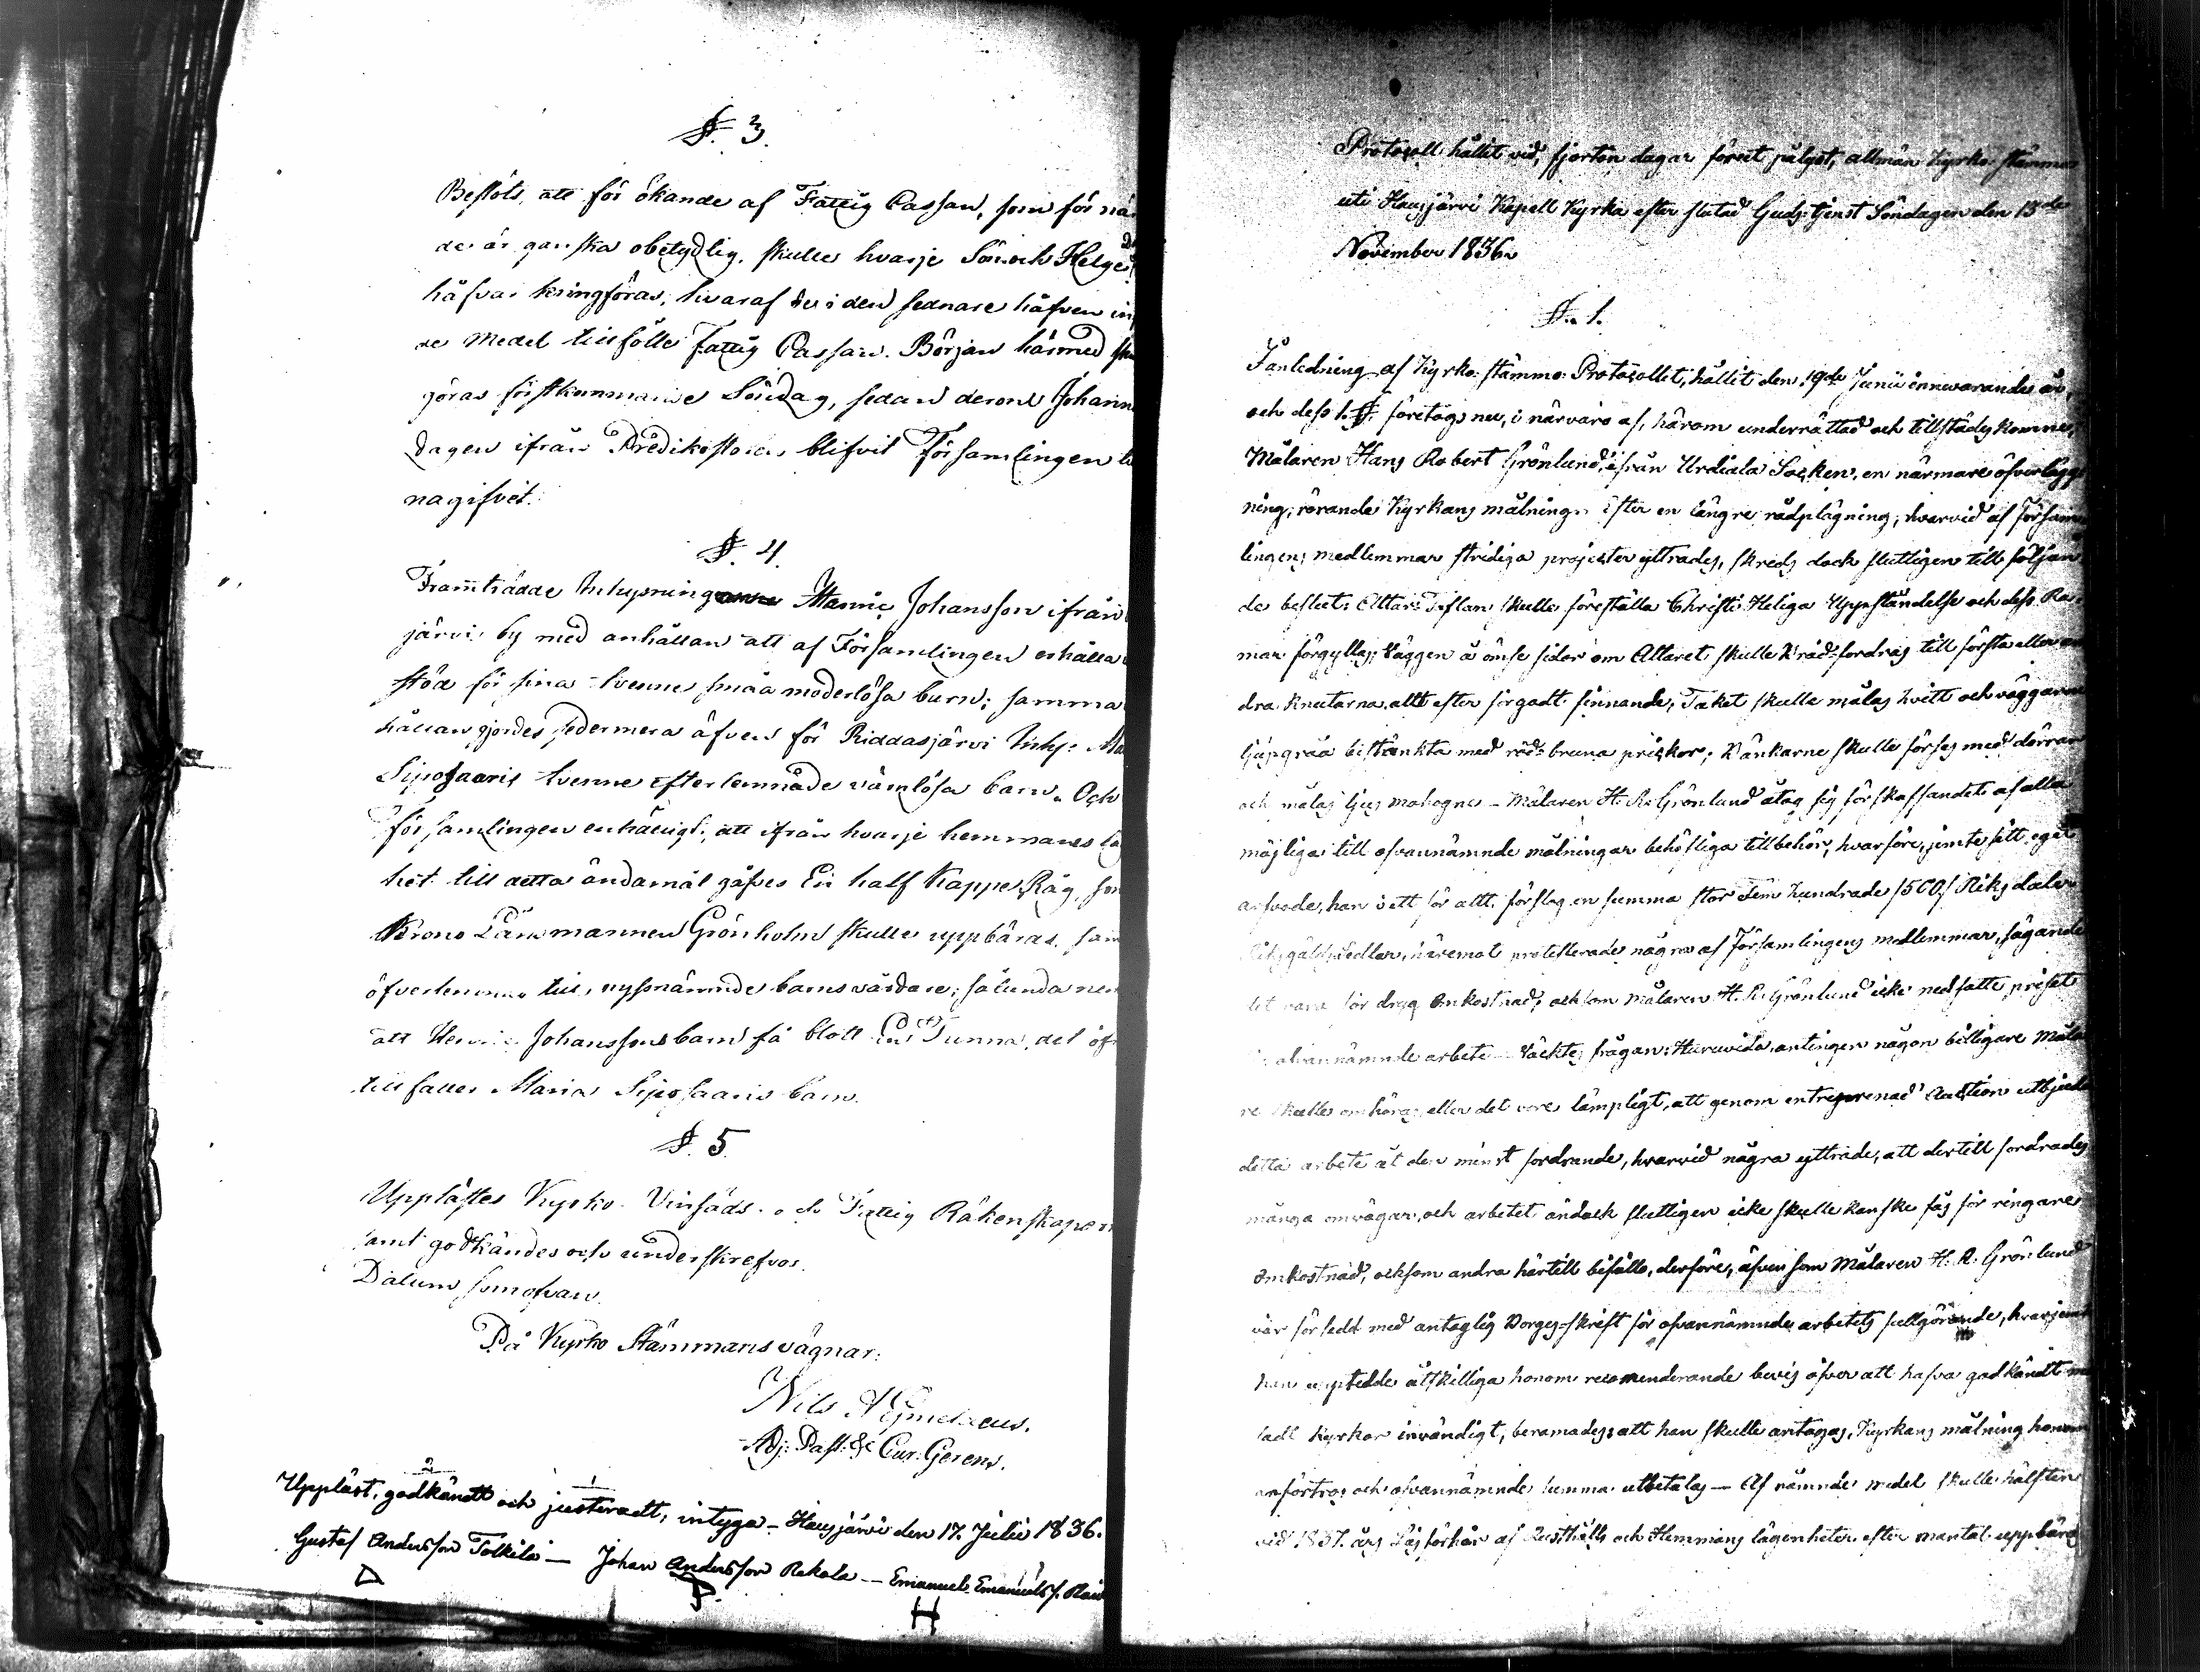 §. 3.
Beslöts, att för ökande af Fattig Cassan, som för när
de är ganska obetydlig, skulle hvarje Sön och Helge
håfvar kringföras, hvaraf de i den sednare håfven in
de medel tillfölle Fattig Cassan. Början härmed sku
göras förstkommande Söndag, sedan derom Johanni
dagen ifrån Predikostolen blifvit Församlingen
nagifvet.
§. 4.
Framträdde Inhysning Johansson ifrån
järvi by med anhållan att af Församlingen erhålla
stöd för sina tvenne små moderlösa barn; samma
hållan gjordes sedermera äfven för Riddasjärvi Inhys: Ma
Siposaaris tvenne efterlemnade värnlösa barn. Och
församlingen enhälligt, att ifrån hvarje hemmans läg
het till detta ändamål gåfves En half Kappe Råg, som
Krono Länsmannen Grönholm skulle uppbäras, sam
öfverlemnas till nyssnämnde barns vårdare; sålunda nem
att Johanssons barn få blott En Tunna, det öf
tillfaller Maria Siposaaris barn.
§. 5.
Upplästes Kyrko- Vinsäds- och Fattig Räkenskapern
samt godkändes och underskrefvos.
Datum som ofvan.
På Kyrko Stämmans vägnar:
Nils
Adj: Past: & Cur: Gerens.
Uppläst, godkändt och justeradt, intyga – Hausjärvi den 17. Julii 1836.
Gustaf Andersson Tolkila – Johan Andersson Rekola – Emanuel Emanuelss.
Protocoll hållit vid, fjorton dagar förut pålyst, allmän Kyrko-stämma
uti Hausjärvi Kapell Kyrka efter slutad Gudstjenst Söndagen den 13de
November 1836.
§. 1.
I anledning af Kyrko-stämmo-Protocollet, hållit den 19de Junii innevarande år,
och dess 1. §. företogs nu, i närvaro af, härom underrättad och tillstädes kommne,
Målaren Hans Robert Grönlund, ifrån Urdiala Socken, en närmare öfverlägg
ning, rörande Kyrkans målning. Efter en längre rådplägning, hvarvid af Försam
lingens medlemmar stridiga projecter yttrades, skreds dock slutligen till följan
de beslut: Altar-Taflan skulle föreställa Christi Heliga Uppståndelse och dess Ra
mar förgyllas; Väggen å ömse sidor om Altaret skulle fordras till första eller an
dra knutarna allt efter forgodt finnande, Taket skulle målas hvitt och väggarna
ljusgråa bestänkta med röd-bruna prickor; Bänkarne skulle förses med dörrar
och målas ljus mahogne – Målaren H. R. Grönlund åtog sig förskaffandet af alla
möjliga till ofvannämnde målningar behöfliga tillbehör, hvarföre, jemte sitt eget
arfvode, han i ett för allt, förslog en summa stor Fem hundrade /500/ Riksdaler
Riksgälds Sedlar, häremot protesterade några af Församlingens medlemmar, sägande
det vara för dryg omkostnad; och som Målaren H. R. Grönlund icke nedsatte priset
ofvannämnde arbete – väcktes frågan: Huruvida antingen någon billigare Måla
re skulle anhöras eller det vore lämpligt, att genom entreprenad Auction utbjuda
detta arbete åt den minst fordrande, hvarvid några yttrade, att dertill fordrades
många omvägar, och arbetet ändock slutligen icke skulle kanske fås för ringare
omkostnad, och som andra härtill biföllo, derföre, äfven som Målaren H. R. Grönlund
var försedt med antaglig Borges-skrift för ofvannämnde arbetets fullgörande, hvarjemte
han uppvisade åtskilliga honom recommenderande bevis öfver att hafva godkändt må
ladt Kyrkor invändigt, beramades att han skulle antagas, Kyrkans målning honom
anförtros och ofvannämnde summa utbetalas – Af nämnde medel skulle hälften
vid 1837. års af Rusthålls och Hemmans lägenheter efter mantal uppbäras